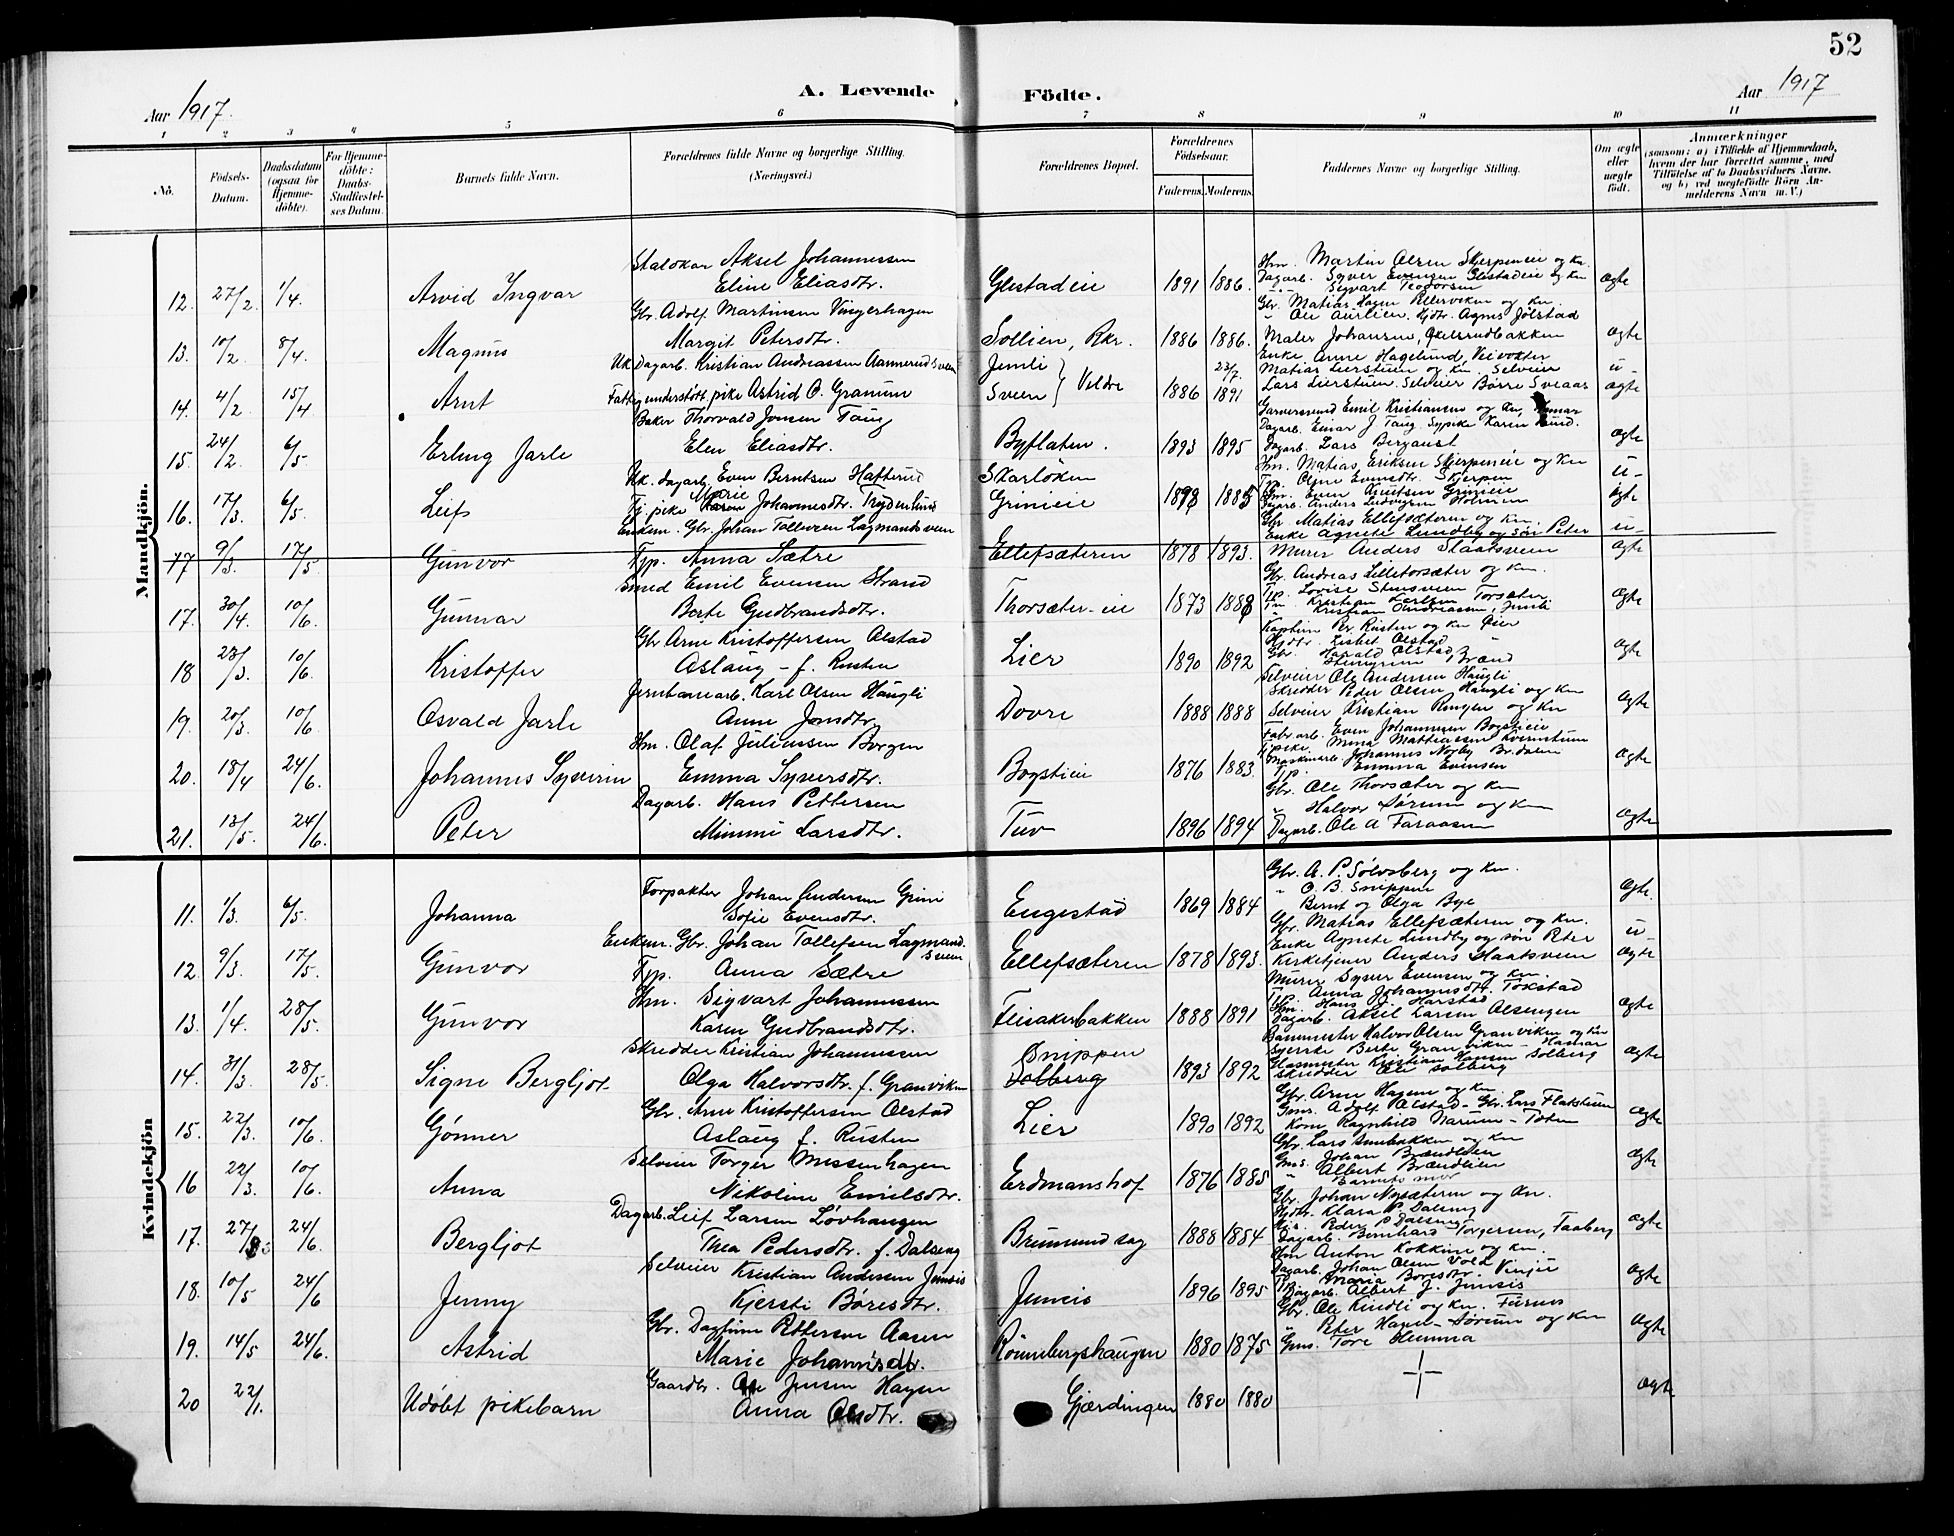 52
Aar 1917.
A. Levende Födte.
Aar 1917
1 2 3 4 5 6 7 8 9 10 11
No.
Födsels-Datum.
Daabsdatum (ogsaa for Hjemme-döbte).
For Hjemme-döbte: Daabs-Stadfæstel-ses Datum.
Barnets fulde Navn.
Forældrenes fulde Navne og borgerlige Stilling. (Næringsvei.)
Forældrenes Bopæl.
Forældrenes Födselsaar.
Faderens. Moderens.
Faddernes Navne og borgerlige Stilling.
Om ægte eller uægte födt.
Anmærkninger
(saasom: a) i Tilfælde af Hjemmedaab, hvem der har forrettet samme, med Tilföielse af to Daabsvidners Navne. og b) ved uægtefödte Börn An-melderens Navn m. V.)
Mandkjön.
12. 27/2. 1/4. Arvid Ingvar Aksel Johannessen
Eline Eliasdtr. Glestadeie 1891 1886. Hm. Martin Olsen Skjerpeneie og kn.
Dagarb. Syver Evensen Glestadeie og kn
Sigvart Teodorsen ægte
13. 10/2 8/4. Magnus Gbr. Adolf Martinsen Vingerhagen
Margit Petersdtr. Sollien, Rkr. 1886 1886. Gbr. Matias Hagen og kn.
Maler Johansen, ægte
14. 4/2 15/4 Arnt Uk. Dagarb. Kristian Andreassen
pike Astrid O. Granum Jemli
Sveen } Veldre 1886 23/7. 1891 Enke Anne Hagelund,
Matias Lierstuen og kn. Selveier
Lars Lierstuen. Selveier Børre Sveaas u-ægte
15. 24/2 6/5 Erling Jarle Baker Thorvald Jonsen Taug
Elen Eliasdtr. Byflaten. 1893 1895 Garversvend Emil Kristiansen og kn, Hamar
Dagarb. Einar J Taug. Sypike Karen Lund.
Dagarb. Lars Bergaust ægte
16. 17/3 6/5. Leif Uk. dagarb. Even Berntsen
Tj. pike Marie Johannesdtr. Skarløken
Grinieie Hm. Matias Eriksen Skjerpeneie og kn
Tp. Oline Evensdtr. Skjerpen
Hm. Even Knutsen Grinieie
Dagarb. Anders Ludvigsen Holmen u-ægte
17 9/3. 17/5. Gunvor Enkem. Gbr. Johan Tollefsen Lagmandsveen
Typ. Anna Sætre Ellefsæteren 1878 1893. Gbr. Matias Ellefsæteren og kn.
Enke Agnete Lundby og søn Peter
Murer Anders Staatsveen u-ægte
17. 30/4. 10/6. Gunnar Smed Emil Evensen Strand
Berte Gudbrandsdtr. Thorsæter-eie 1873 Gbr. Andreas Lilletorsæter og kn.
Tp. Lovise Stensveen
Kristian Karlsen Torsæter
Kristian Andreassen, Jemli ægte
18 23/3. 10/6. Kristoffer Gbr Arne Kristoffersen Olstad
Aslaug - f. Rusten Lier 1890 1892 Kaptein Pr. Rusten og kn Øier
Hjdtr. Lisbet Olstad
Gbr. Harald Olstad, Brænd ægte
19. 20/3. 10/6. Osvald Jarle Jernbanearb. Karl Olsen Haugli
Anne Jonsdtr. Dovre 1888 1888 Selveier Ole Andersen Haugli
Skredder Peder Olsen Haugli og kn
Selveier Kristian Ringen og kn ægte
20. 18/4 24/6. Johannes Syverin Hm. Olaf Juliussen Borgen
Emma Syversdtr. Bogstieie 1876 1883. Fabr. arb. Even Johannesen Bogstieie
Tj.pike. Mina Mattiassen Kvernstuen
Maskinarb. Johannes Norby Br.dalen
Tp. Emma Evensen ægte
21. 13/5. 24/6. Peter Dagarb. Hans Pettersen
Mimmi Larsdtr. Tuv 1896 1894 Gbr. Ole Thorsæter og kn
" Halvor Sørum og kn
Dagarb. Ole A Faraasen ægte
Kvindekjön
11. 1/3. 6/5. Johanna Forpakter Johan Andersen Grini
Sofie Evensdtr. Engestad 1869 1884 Gbr. A. P. Sølvsberg og kn.
" O. B. Snippen
Bernt og Olga Bye ægte.
12. 9/3. 17/5. Gunvor Enkem. Gbr. Johan Tollefsen Lagmand-sveen
Typ. Anna Sætre Ellefsæteren 1878 1893. Gbr. Matias Ellefsæteren og kn.
Enke Agnete Lundby og søn Peter
Kirketjener Anders Staatsveen u-ægte
13. 1/4. 28/5. Gunvor Hm. Sigvart Johannessen
Karen Gudbrandsdtr. Flisakerbakken 1888 1891 Murer Syver Evensen og kn.
Typ. Anna Johannesdtr. Tokstad
Hm. Hans J. Harstad
Dagarb. Aksel Larsen Alsengen ægte
14. 31/3. 28/5. Signe Bergljot Skredder Kristian Johannessen
Olga Halvorsdtr. f. Granviken Snippen
Solberg 1893 1892 Banemester Halvor Olsen Granviken og kn
Berte Granviken - Hamar
Glasmester Kristian Hansen Solberg
Skredder Ole Solberg ægte
15. 22/3. 10/6. Gønner Gbr. Arne Kristoffersen Olstad
Aslaug f. Rusten Lier 1890 1892 Gbr. Arne Hagen og kn.
Gms. Adolf Olstad - Gbr. Lars Flatstuen
Ragnhild Narum - Toten ægte
16 22/3. 10/6. Anna Selveier Torger Messenhagen
Nikoline Emilsdtr. Erdmanshof 1876 1885 Gbr. Lars og kn
Gms. Johan Brændlien
" Albert Brændlien
Barnets mor ægte
17. 24/6. Bergljot Dagarb. Leif Larsen Løvhaugen
Thea Pedersdtr. f. Dalseng Brumundsag 1888 1884 Gbr. Johan Nysæteren og kn.
Hjdtr. Klara P Dalseng
Peder P Dalseng
Dagarb. Bernhard Torgersen, Faaberg ægte
18. 10/5 24/6 Jenny Selveier Kristian Andersen Jemsis
Kjersti Børesdtr. Jemsis 1896 1895 Hm Anton Kokkin og kn.
Dagarb. Johan Olsen Vold
Maria Boresdtr. Vinjue
Dagarb. Albert J. Jemsis ægte
19. 14/5 24/6. Astrid Gbr. Dagfinn Pettersen Aasen
Marie Johannesdtr. Rønnebergshaugen 1880 1875 Gbr. Ole Kindli og kn. Furnes
" Peter Hagen-Sørum og kn
Gms. Tore Hemma ægte
20 22/1. Udøbt pikebarn Gaardbr. Ole Jensen Hagen
Anna Olsdtr. Gjærdingen 1880 1880 ægte